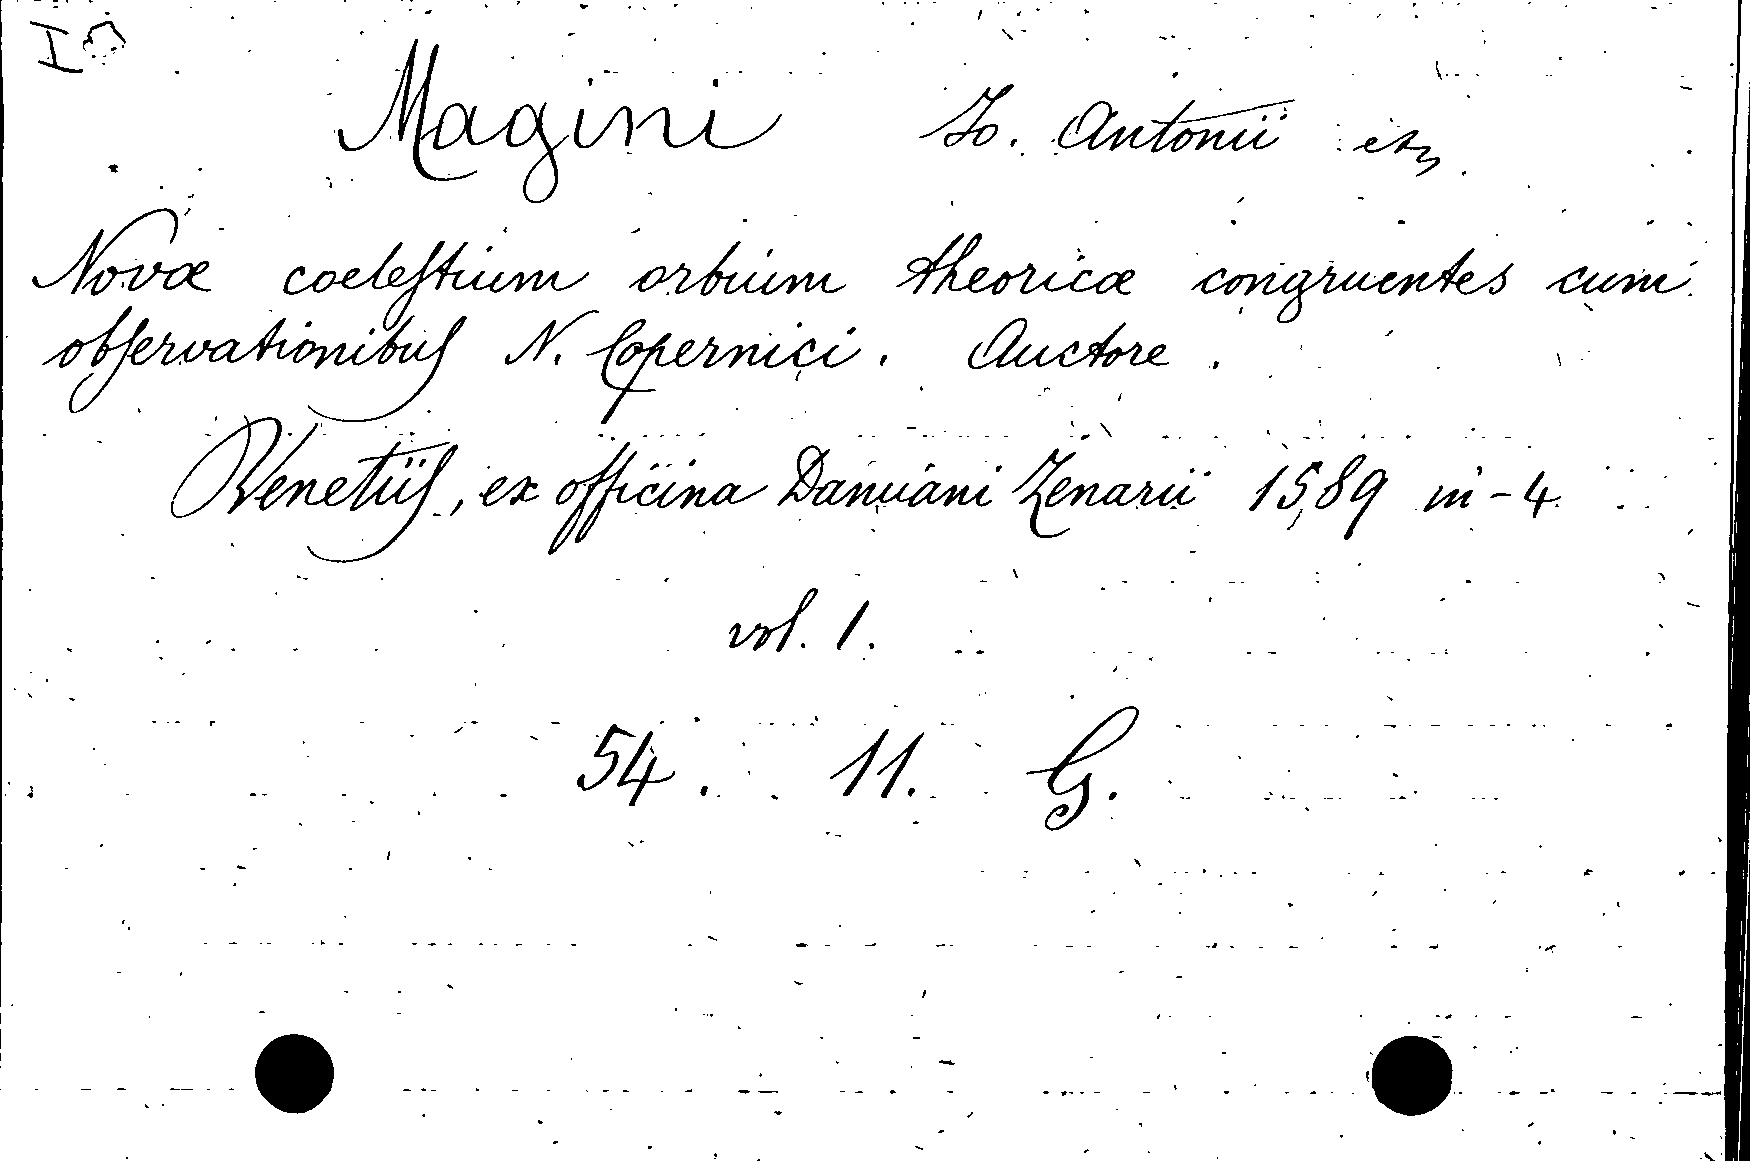 Magini Jo. Antonii etc.
Novæ coeleſtium orbium theoricæ congruentes cum
obſervationibuſ N. Copernici. Auctore.
Venetiiſ, ex officina Damiani Zenarii 1589 in-4
vol. 1.
54. 11. G.